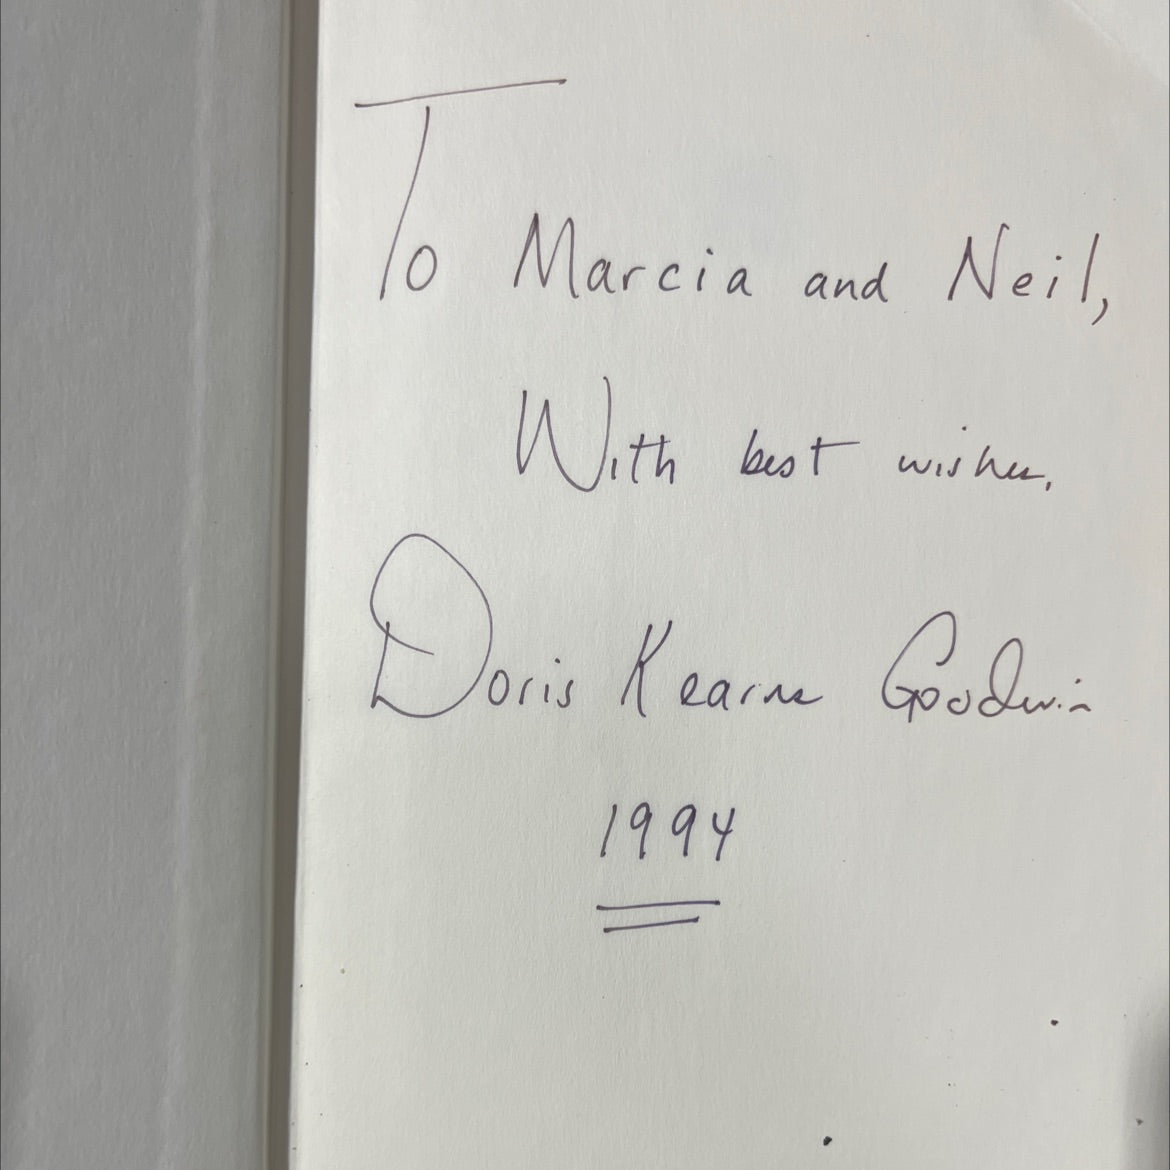 To Marcia and Neil,
With best wishes,
Doris Kearns Goodwin
1994